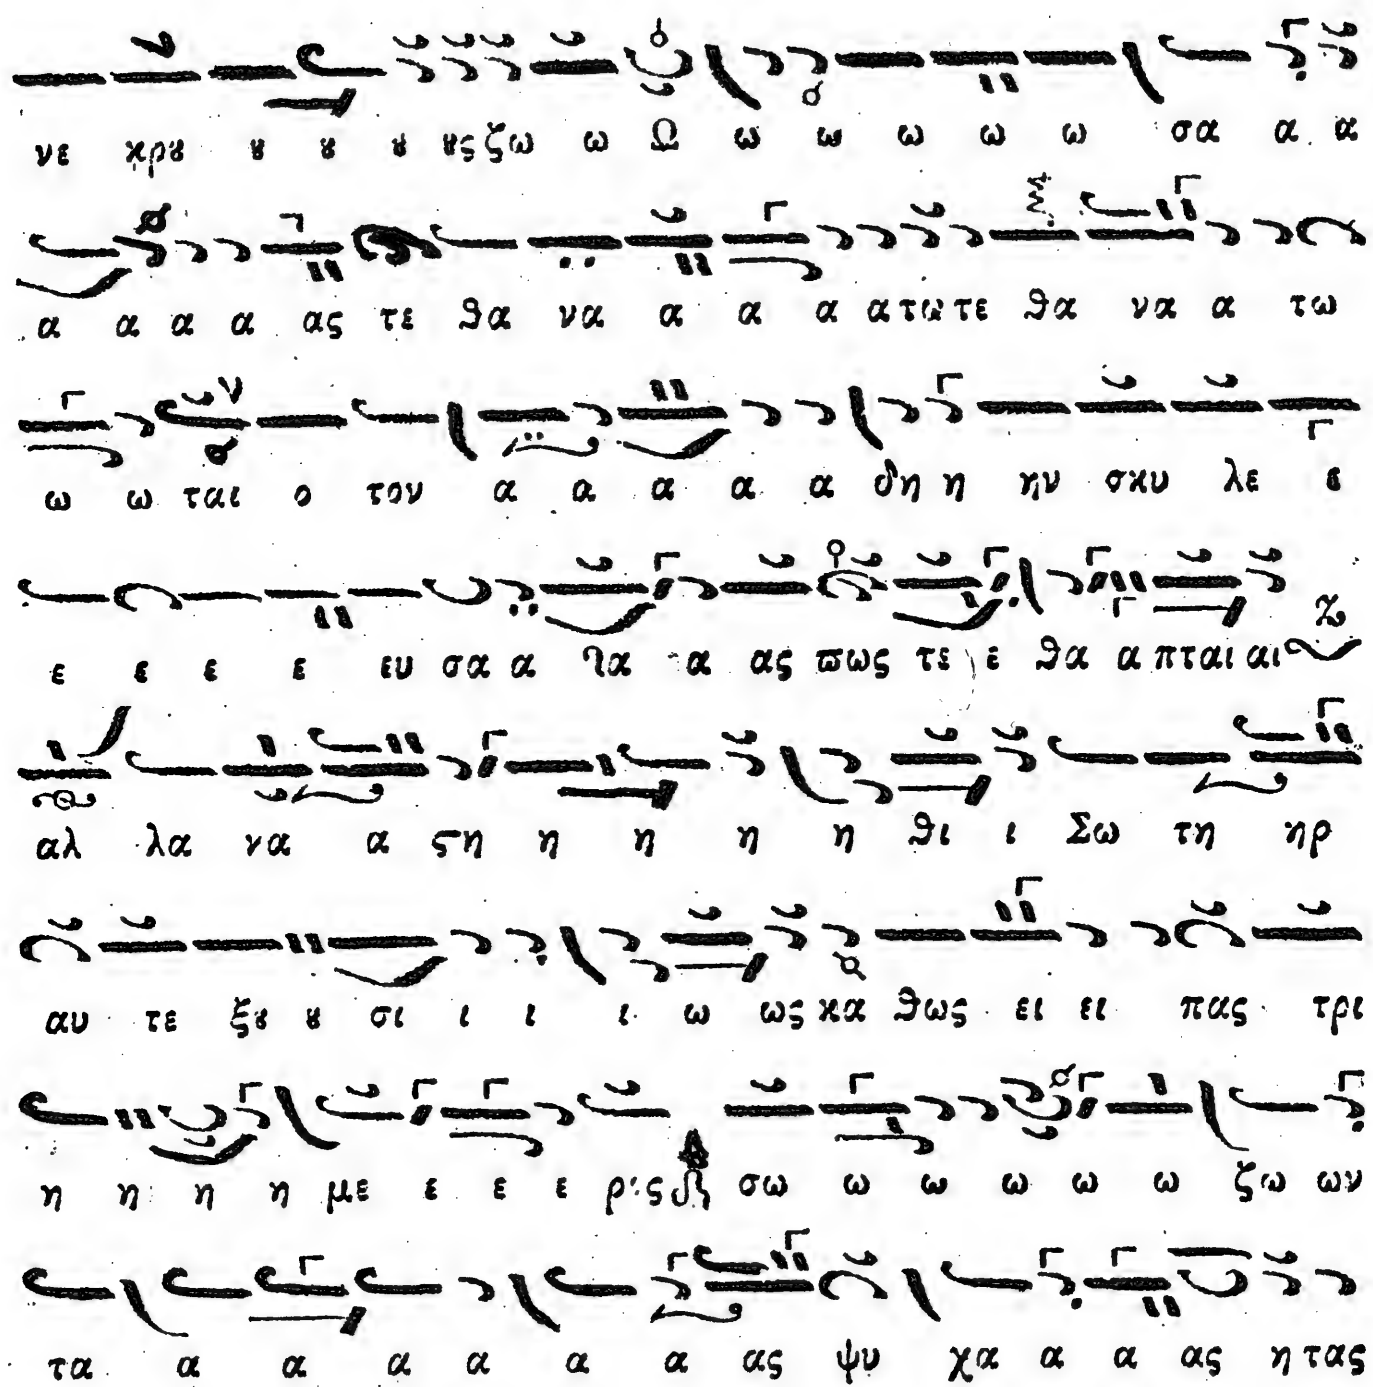 νε κρȣ ȣ ȣ ȣ ȣς ζω ω Ω ω ω ω ω ω σα α α
α α α α ας τε θα να α α α α τω τε θα να α τω
ω ω ται ο τον α α α α α δη η ην σκυ λε ε
ε ε ε ε ευ σα α τα α ας πως τε ε θα α πται αι
αλ λα να α ςη η η η η θι ι Σω τη ηρ
αυ τε ξȣ ȣ σι ι ι ι ω ως κα θως ει ει πας τρι
η η η η με ε ε ε ρας σω ω ω ω ω ω ζω ων
τα α α α α α α ας ψυ χα α α ας η τας